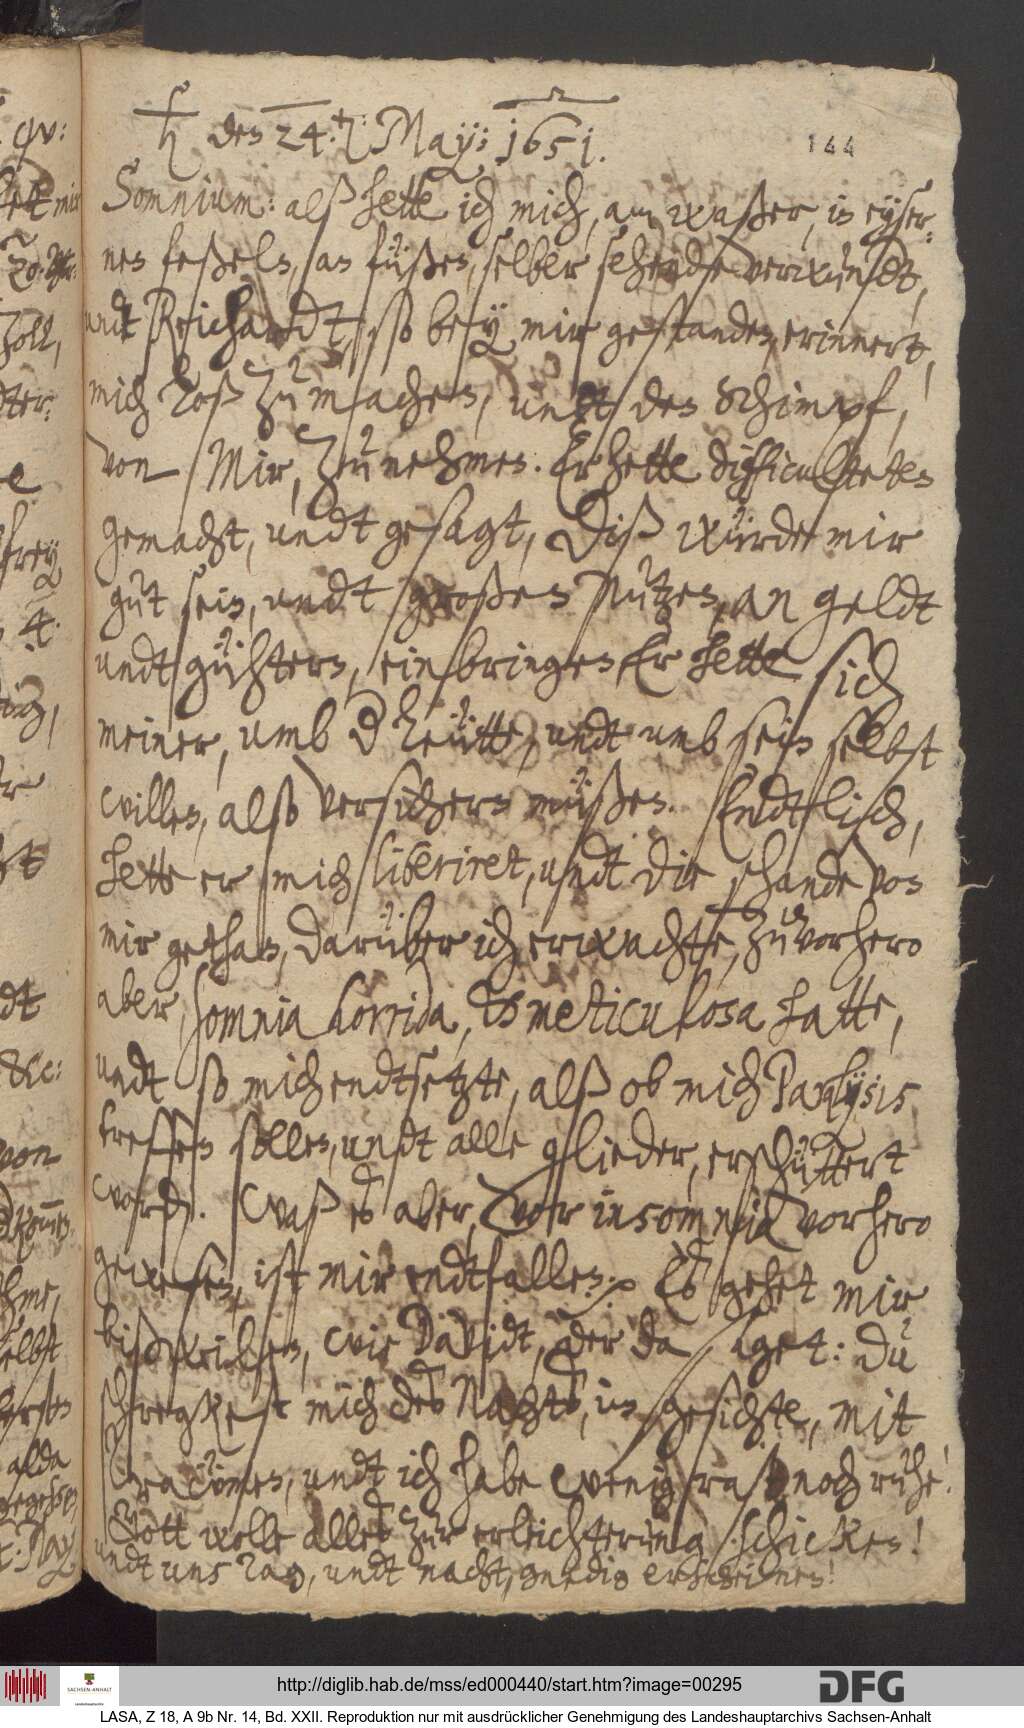 ♄ den 24.ten: May: 1651.
144
Somnium: alß hette ich mich, am waßer, in eyser-
nen feßeln, an füßen, selber sehende verwundt,
undt Reichardt, so bey mir gestanden, erinnert,
mich loß zu machen, undt den Schimpf,
von Mir, zu nehmen. Er hette difficulteten
gemacht, undt gesagt, Diß würde mir
gut sein, undt großen Nutzen, an geldt
undt gühtern, einbringen Er hette sich
meiner, umb d leütte, undt umb sein selbst
willen, also versichern müßen. Endtlich,
hette er mich liberiret, undt die schande von
mir gethan, darüber ich erwachte, zu vorhero
aber, somnia horrida, et meticulosa hatte,
undt so mich endtsetzte, alß ob mich Paralysis
treffen sollen, undt alle glieder, erschüttert
word. Waß es aber, vor insomnia vorhero
gewesen, ist mir endtfallen. Es gehet mir
bißweilen, wie Davidt, der da saget: Du
schregkest mich des Nachts, im gesichte, mit
Traümen, undt ich habe wenig rast noch ruhe!
Gott wolle alles zur erleichterung schicken!
undt uns Tag, undt nacht, gnedig erscheinen!
qu:
mir
Zoll,
frey
4.
von
selbst
alda
May
http://diglib.hab.de/mss/ed000440/start.htm?image=00295
SACHSEN-ANHALT
DFG
LASA, Z 18, A 9b Nr. 14, Bd. XXII. Reproduktion nur mit ausdrücklicher Genehmigung des Landeshauptarchivs Sachsen-Anhalt